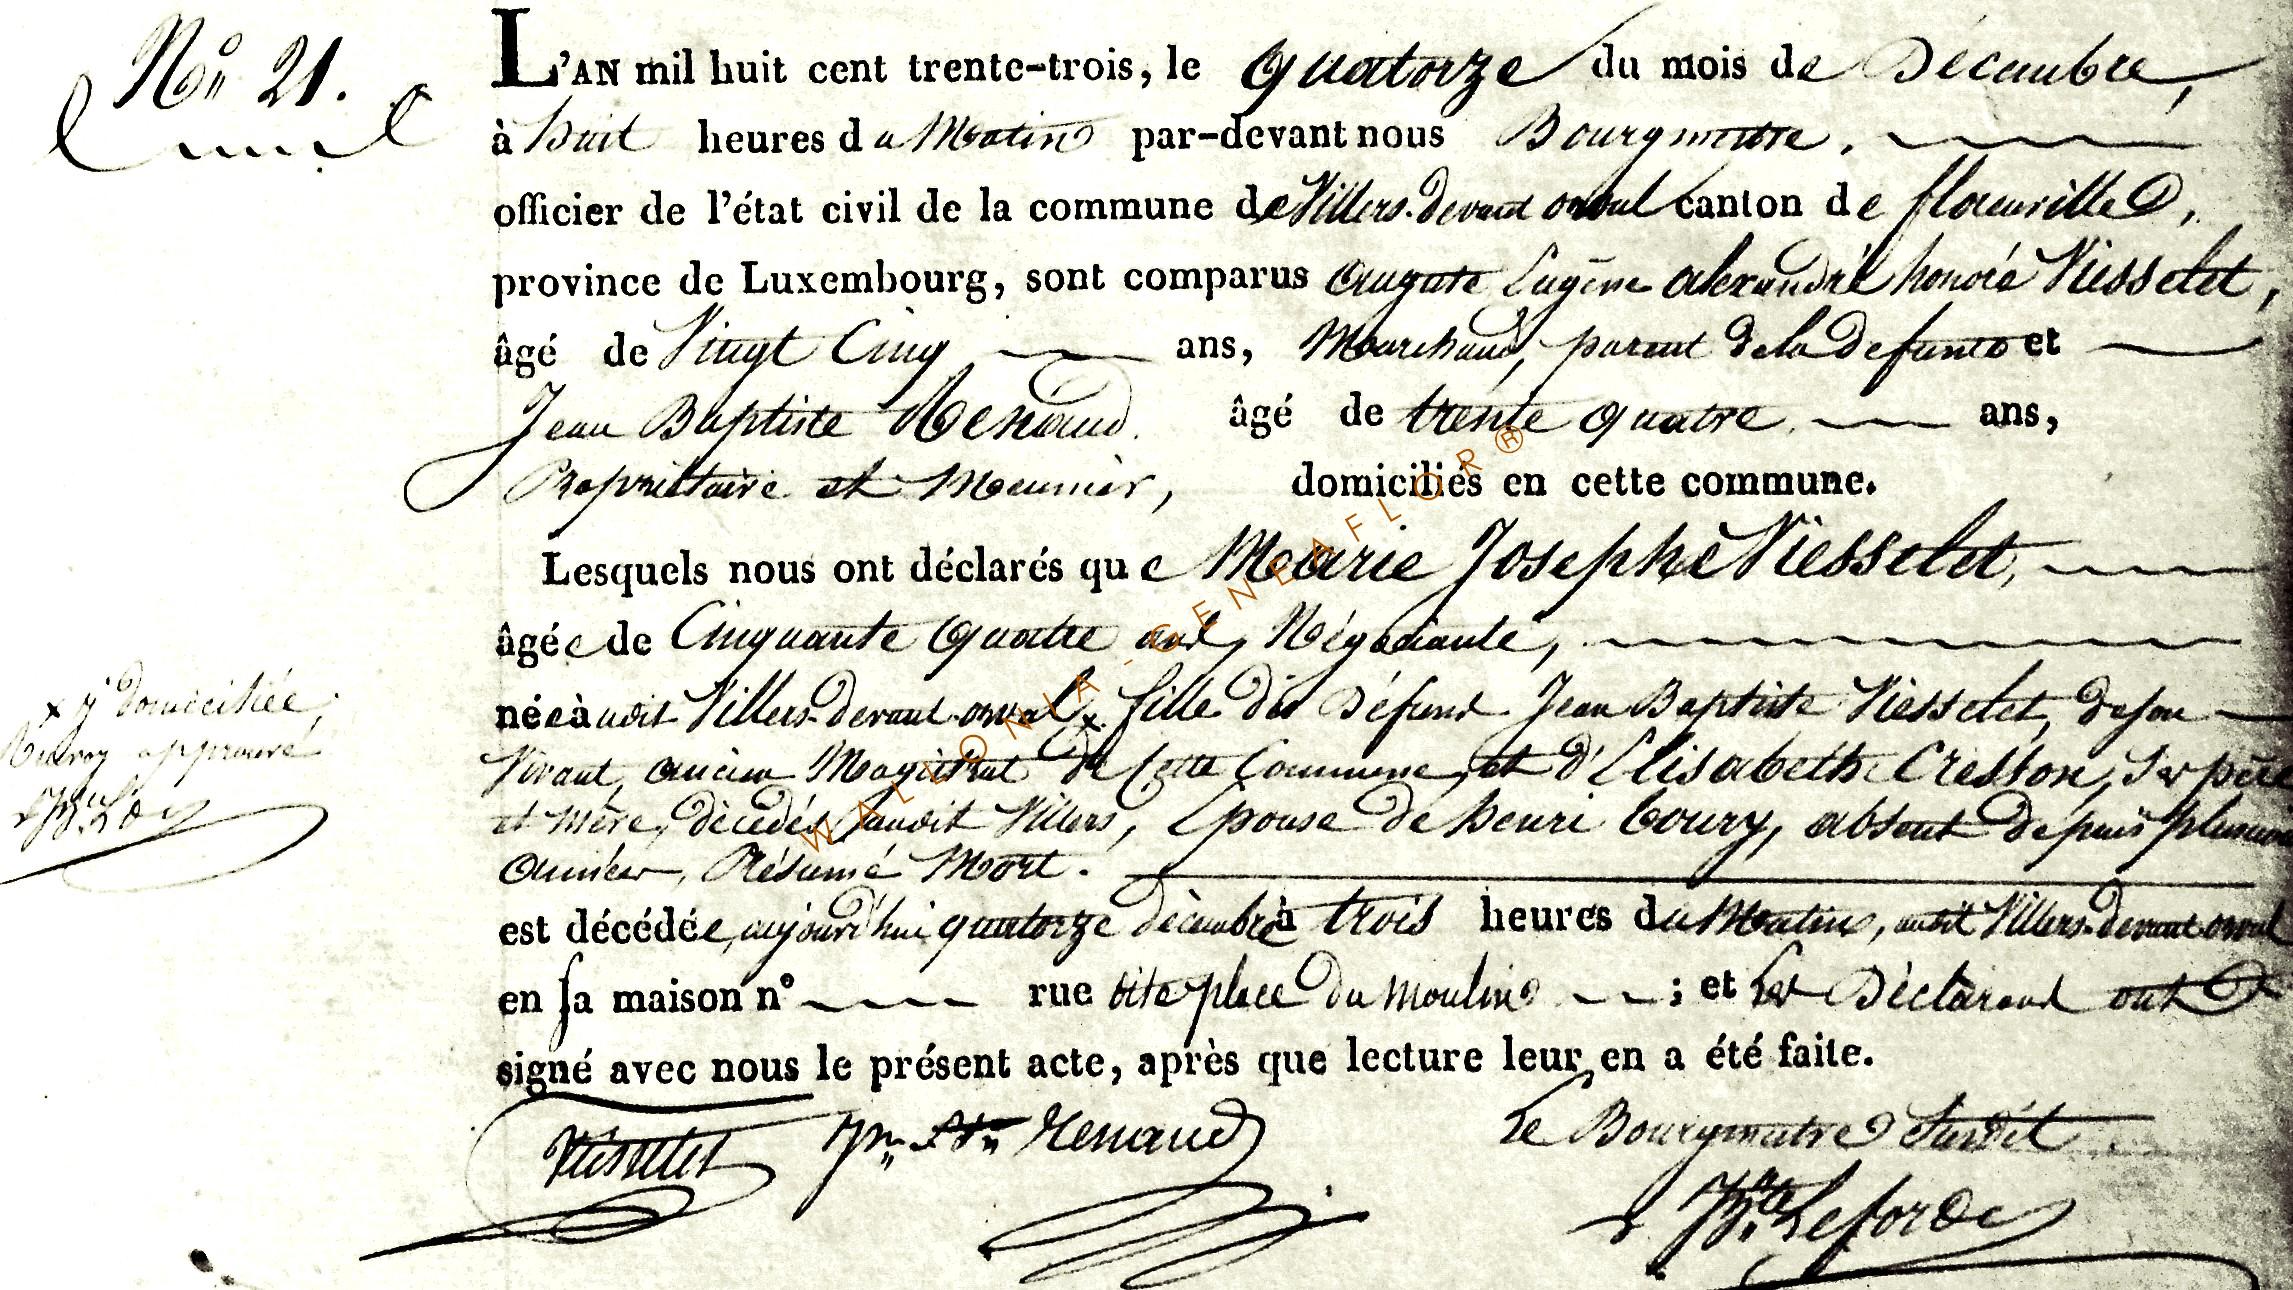 N° 21.
L'AN mil huit cent trente-trois, le quatorze du mois de Décembre,
à huit heures du Matin par-devant nous Bourgmestre,
officier de l'état civil de la commune de Villers-devant orval canton de florenville,
province de Luxembourg, sont comparus auguste Eugène alexandre honoré Viesselet,
âgé de Vingt Cinq ans, Marchand, parent de la defunte et
Jean Baptiste Renaud âgé de trente quatre ans,
Propriétaire et Meunier, domiciliés en cette commune.
Lesquels nous ont déclarés que Marie Josephe Viesselet,
âgée de Cinquante quatre ans, Négociante,
née audit Villers-devant-orval, x fille de Défunt Jean Baptiste Viesselet, de son
x y domiciliée,
approuvé
Vivant, ancien Magistrat de Cette Commune, et d'Elisabeth Cresson, ses père
et mère, décédés audit Villers, Epouse de henri Coury, absent depuis plusieurs
années, Présumé Mort.
est décédée, aujourd'hui quatorze décembre à trois heures du Matin, audit Villers-devant orval
en sa maison n° rue dite place du moulin ; et les Déclarans ont
signé avec nous le présent acte, après que lecture leur en a été faite.
Viesselet Jn Bte Renaud Le Bourgmestre Susdit
WALLONIA - GENEAFLOR ®